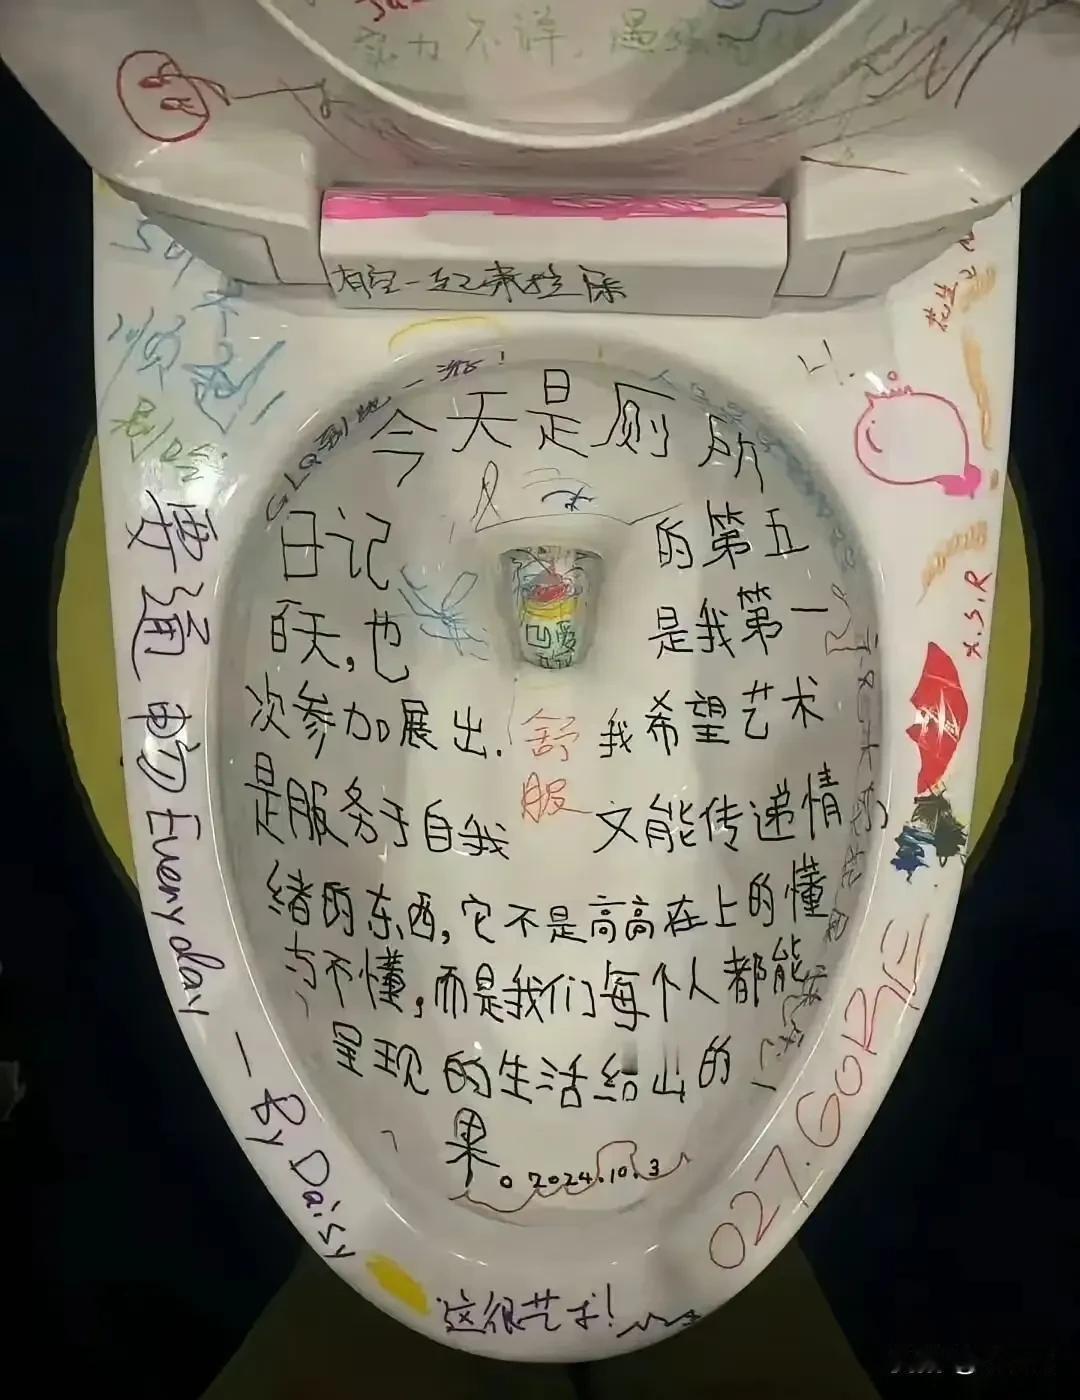 实力不详,遇强
有空一起来拉屎
一游!
GLQ到此
今天是厕所
日记的第五
百天,也是我第一
次参加展出.我希望艺术
是服务于自我又能传递情
绪的东西,它不是高高在上的懂
与不懂,而是我们每个人都能
呈现的生活结出的
果。2024.10.3
舒服
要通畅Everyday
—By Daisy
X.S.R
027.GORE
这很艺术!